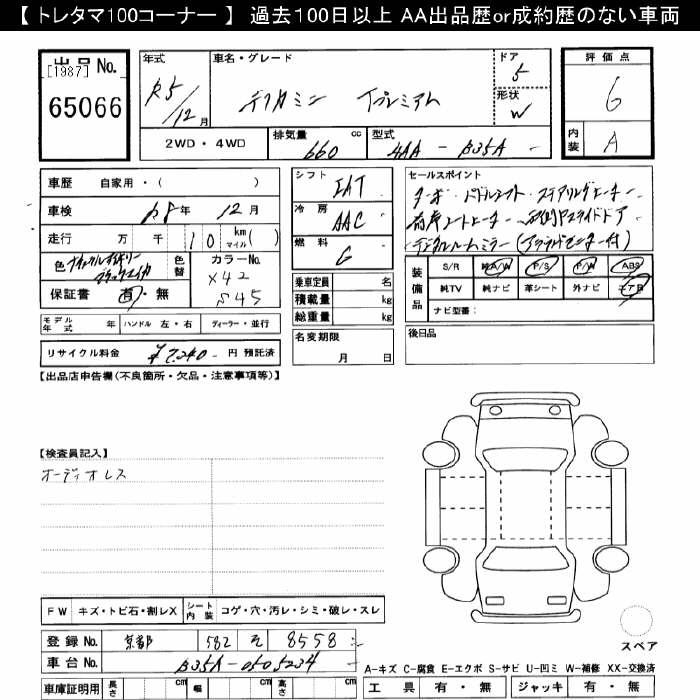 【 トレタマ100コーナー 】 過去100日以上 AA出品歴or成約歴のない車両
出品No.
[1987]
65066
年式
R5/12月
車名・グレード
デリカミニ プレミアム
ドア
5
形状
W
評価点
6
内装
A
2WD・4WD
排気量
660 cc
型式
4AA-B35A
車歴 自家用・( )
車検 R8年 12月
走行 万 千 10 km マイル ( )
色
色替
カラーNo.
X42
S45
保証書 有・無
モデル年式 年 ハンドル 左・右 ディーラー・並行
リサイクル料金 ¥7,240- 円 預託済
シフト
IAT
冷房
AAC
燃料
G
乗車定員 名
積載量 kg
総重量 kg
名変期限
月 日
セールスポイント
ターボ・パドルシフト・ステアリングヒーター
前席シートヒーター・両側Pスライドドア
デジタルルームミラー(アラウンドモニター付)
装備品
S/R 純A/W P/S P/W ABS
純TV 純ナビ 革シート 外ナビ エアB
ナビ型番:
後日品
【出品店申告欄(不良箇所・欠品・注意事項等)】
【検査員記入】
オーディオレス
FW キズ・トビ石・割レX シート内装 コゲ・穴・汚レ・シミ・破レ・スレ
登録No. 京都 582 そ 8558
車台No. B35A-0505234
車庫証明用 長さ cm 幅 cm 高さ cm
スペア
A-キズ C-腐食 E-エクボ S-サビ U-凹ミ W-補修 XX-交換済
工具 有・無 ジャッキ 有・無